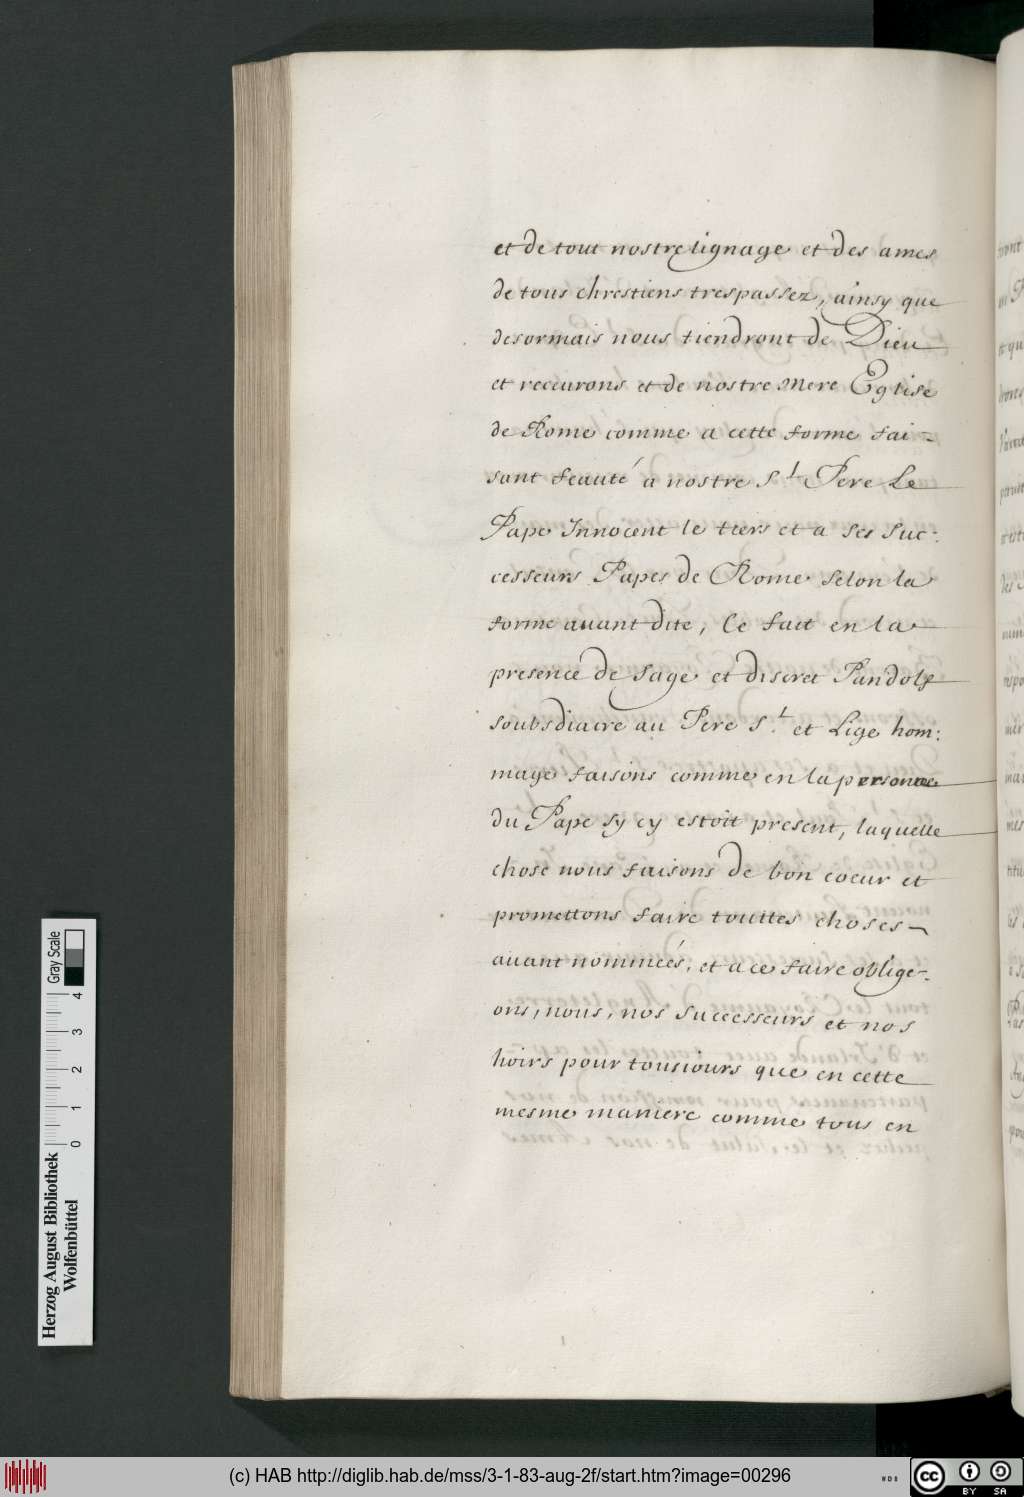 et de tout nostre lignage et des ames
de tous chrestiens trespassez, ainsy que
desormais nous tiendront de Dieu
et recevrons et de nostre mere Eglise
de Rome comme a cette forme fai-
sant feauté a nostre S.t Pere Le
Pape Innocent le tiers et a ses suc:
cesseurs Papes de Rome selon la
forme auant dite, Ce fait en la
presence de sage et discret Pandolf
soubsdiacre au Pere S.t et Lige hom:
mage faisons comme en la personne
du Pape sy cy estoit present, laquelle
chose nous faisons de bon coeur et
promettons faire touttes choses
auant nommeés, et a ce faire oblige-
ons, nous, nos successeurs et nos
hoirs pour tousiours que en cette
mesme maniere comme tous en
Herzog August Bibliothek
Wolfenbüttel
0 1 2 3 4
Gray Scale
(c) HAB http://diglib.hab.de/mss/3-1-83-aug-2f/start.htm?image=00296
cc BY SA